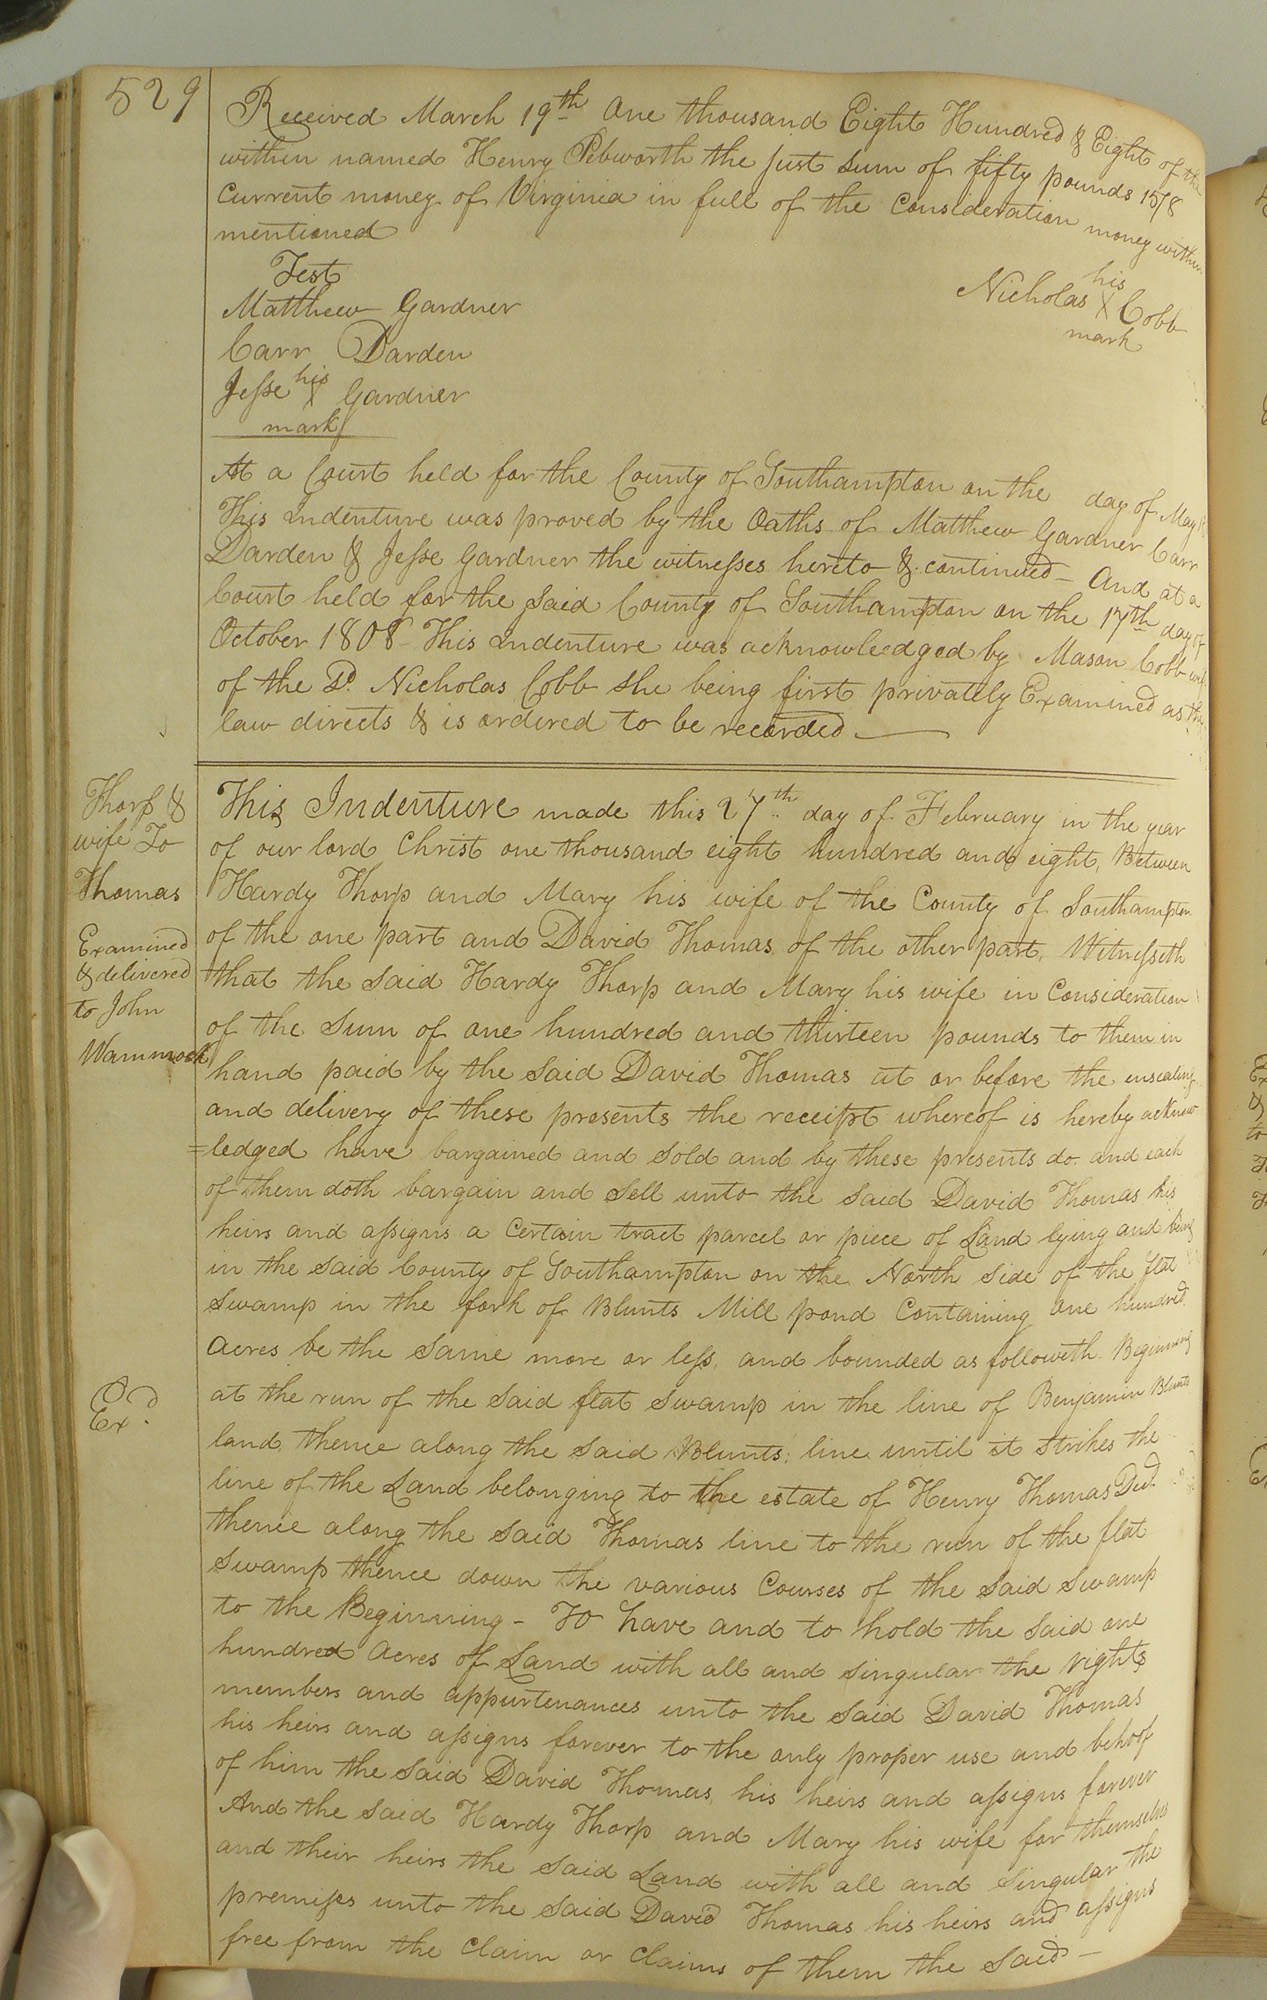 529
Received March 19th One thousand Eight Hundred & Eight of the
within named Henry Pebworth the just sum of fifty pounds 15/8
Current money of Virginia in full of the Consideration money within
mentioned
Test
Matthew Gardner
Carr Darden
Jesse his X Gardner
mark
Nicholas his X Cobb
mark
At a Court held for the County of Southampton on the day of May
This Indenture was proved by the Oaths of Matthew Gardner Carr
Darden & Jesse Gardner the witnesses hereto & continued - And at a
Court held for the said County of Southampton on the 17th day of
October 1808 This Indenture was acknowledged by Mason Cobb wife
of the Sd. Nicholas Cobb she being first privately Examined as the
law directs & is ordered to be recorded
Thorp &
wife To
Thomas
Examined
& delivered
to John
Wammock
Exd.
This Indenture made this 27th day of February in the year
of our lord Christ one thousand eight hundred and eight, Between
Hardy Thorp and Mary his wife of the County of Southampton
of the one part and David Thomas of the other part, Witnesseth
that the said Hardy Thorp and Mary his wife in Consideration
of the Sum of one hundred and thirteen pounds to them in
hand paid by the said David Thomas at or before the ensealing
and delivery of these presents the receipt whereof is hereby acknow
=ledged have bargained and sold and by these presents do and each
of them doth bargain and Sell unto the said David Thomas his
heirs and assigns a Certain tract parcel or piece of Land lying and being
in the said County of Southampton on the North side of the flat
Swamp in the fork of Blunts Mill pond Containing one hundred
Acres be the Same more or less, and bounded as followeth Beginning
at the run of the said flat swamp in the line of Benjamin Blunts
land thence along the said Blunts line until it strikes the
line of the Land belonging to the estate of Henry Thomas Decd.
thence along the said Thomas line to the run of the flat
Swamp thence down the various Courses of the said Swamp
to the Beginning - To have and to hold the said one
hundred Acres of Land with all and singular the rights
members and appurtenances unto the said David Thomas
his heirs and assigns forever to the only proper use and behoof
of him the said David Thomas, his heirs and assigns forever
And the said Hardy Thorp and Mary his wife for themselves
and their heirs the said Land with all and Singular the
premises unto the said David Thomas his heirs and assigns
free from the Claim or Claims of them the said -